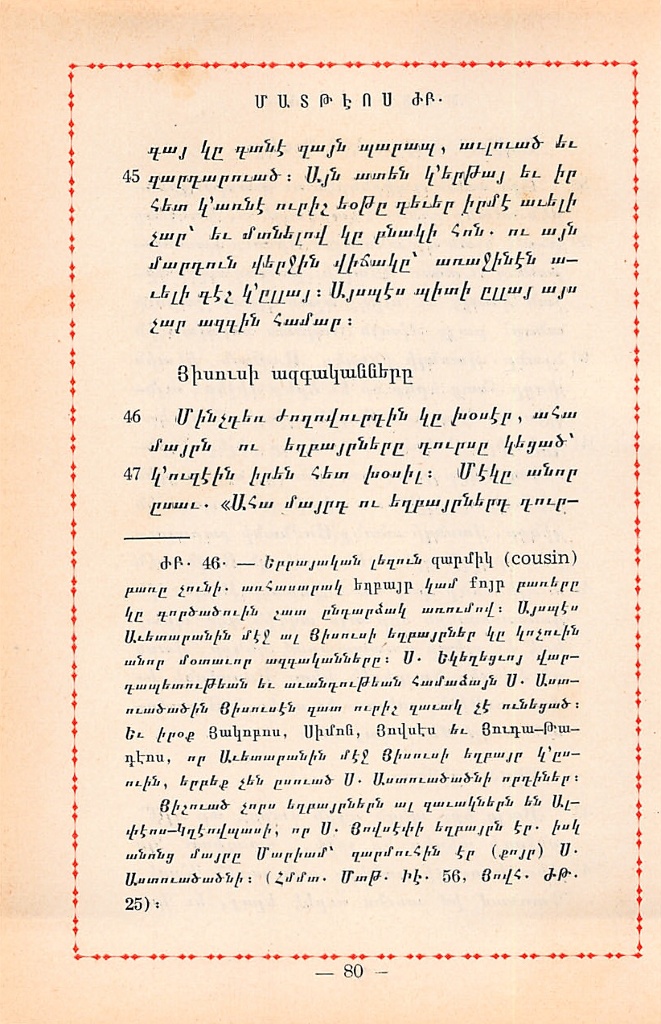 ՄԱՏԹԷՈՍ ԺԲ.
գայ կը գտնէ զայն պարապ, աւլուած եւ
45 զարդարուած: Այն ատեն կ՚երթայ եւ իր
հետ կ՚առնէ ուրիշ եօթը դեւեր իրմէ աւելի
չար՝ եւ մտնելով կը բնակի հոն. ու այն
մարդուն վերջին վիճակը՝ առաջինէն ա-
ւելի գէշ կ՚ըլլայ: Այսպէս պիտի ըլլայ այս
չար ազգին համար:
Յիսուսի ազգականները
46 Մինչդեռ ժողովուրդին կը խօսէր, ահա
մայրն ու եղբայրները դուրսը կեցած՝
47 կ՚ուզէին իրեն հետ խօսիլ: Մէկը անոր
ըսաւ. «Ահա մայրդ ու եղբայրներդ դուր-
ԺԲ. 46. — Երրայական լեզուն զարմիկ (cousin)
բառը չունի. առհասարակ եղբայր կամ քոյր բառերը
կը գործածուին շատ ընդարձակ առումով: Այսպէս
Աւետարանին մէջ ալ Յիսուսի եղբայրներ կը կոչուին
անոր մօտաւոր ազգականները: Ս. Եկեղեցւոյ վար-
դապետութեան եւ աւանդութեան համաձայն Ս. Աստ-
ուածածին Յիսուսէն զատ ուրիշ զաւակ չէ ունեցած:
Եւ իրօք Յակոբոս, Սիմոն, Յովսէս եւ Յուդա—Թա-
դէոս, որ Աւետարանին մէջ Յիսուսի եղբայր կ՚ըս-
ուին, երբեք չեն ըսուած Ս. Աստուածածնի որդիներ:
Յիշուած չորս եղբայրներն ալ զաւակներն են Ալ-
փէոս—Կղէովպասի, որ Ս. Յովսէփի եղբայրն էր. իսկ
անոնց մայրը Մարիամ՝ զարմուհին էր (քոյր) Ս.
Աստուածածնի: (Հմմտ. Մատթ. ԻԷ. 56, Յովհ. ԺԹ.
25):
— 80 —